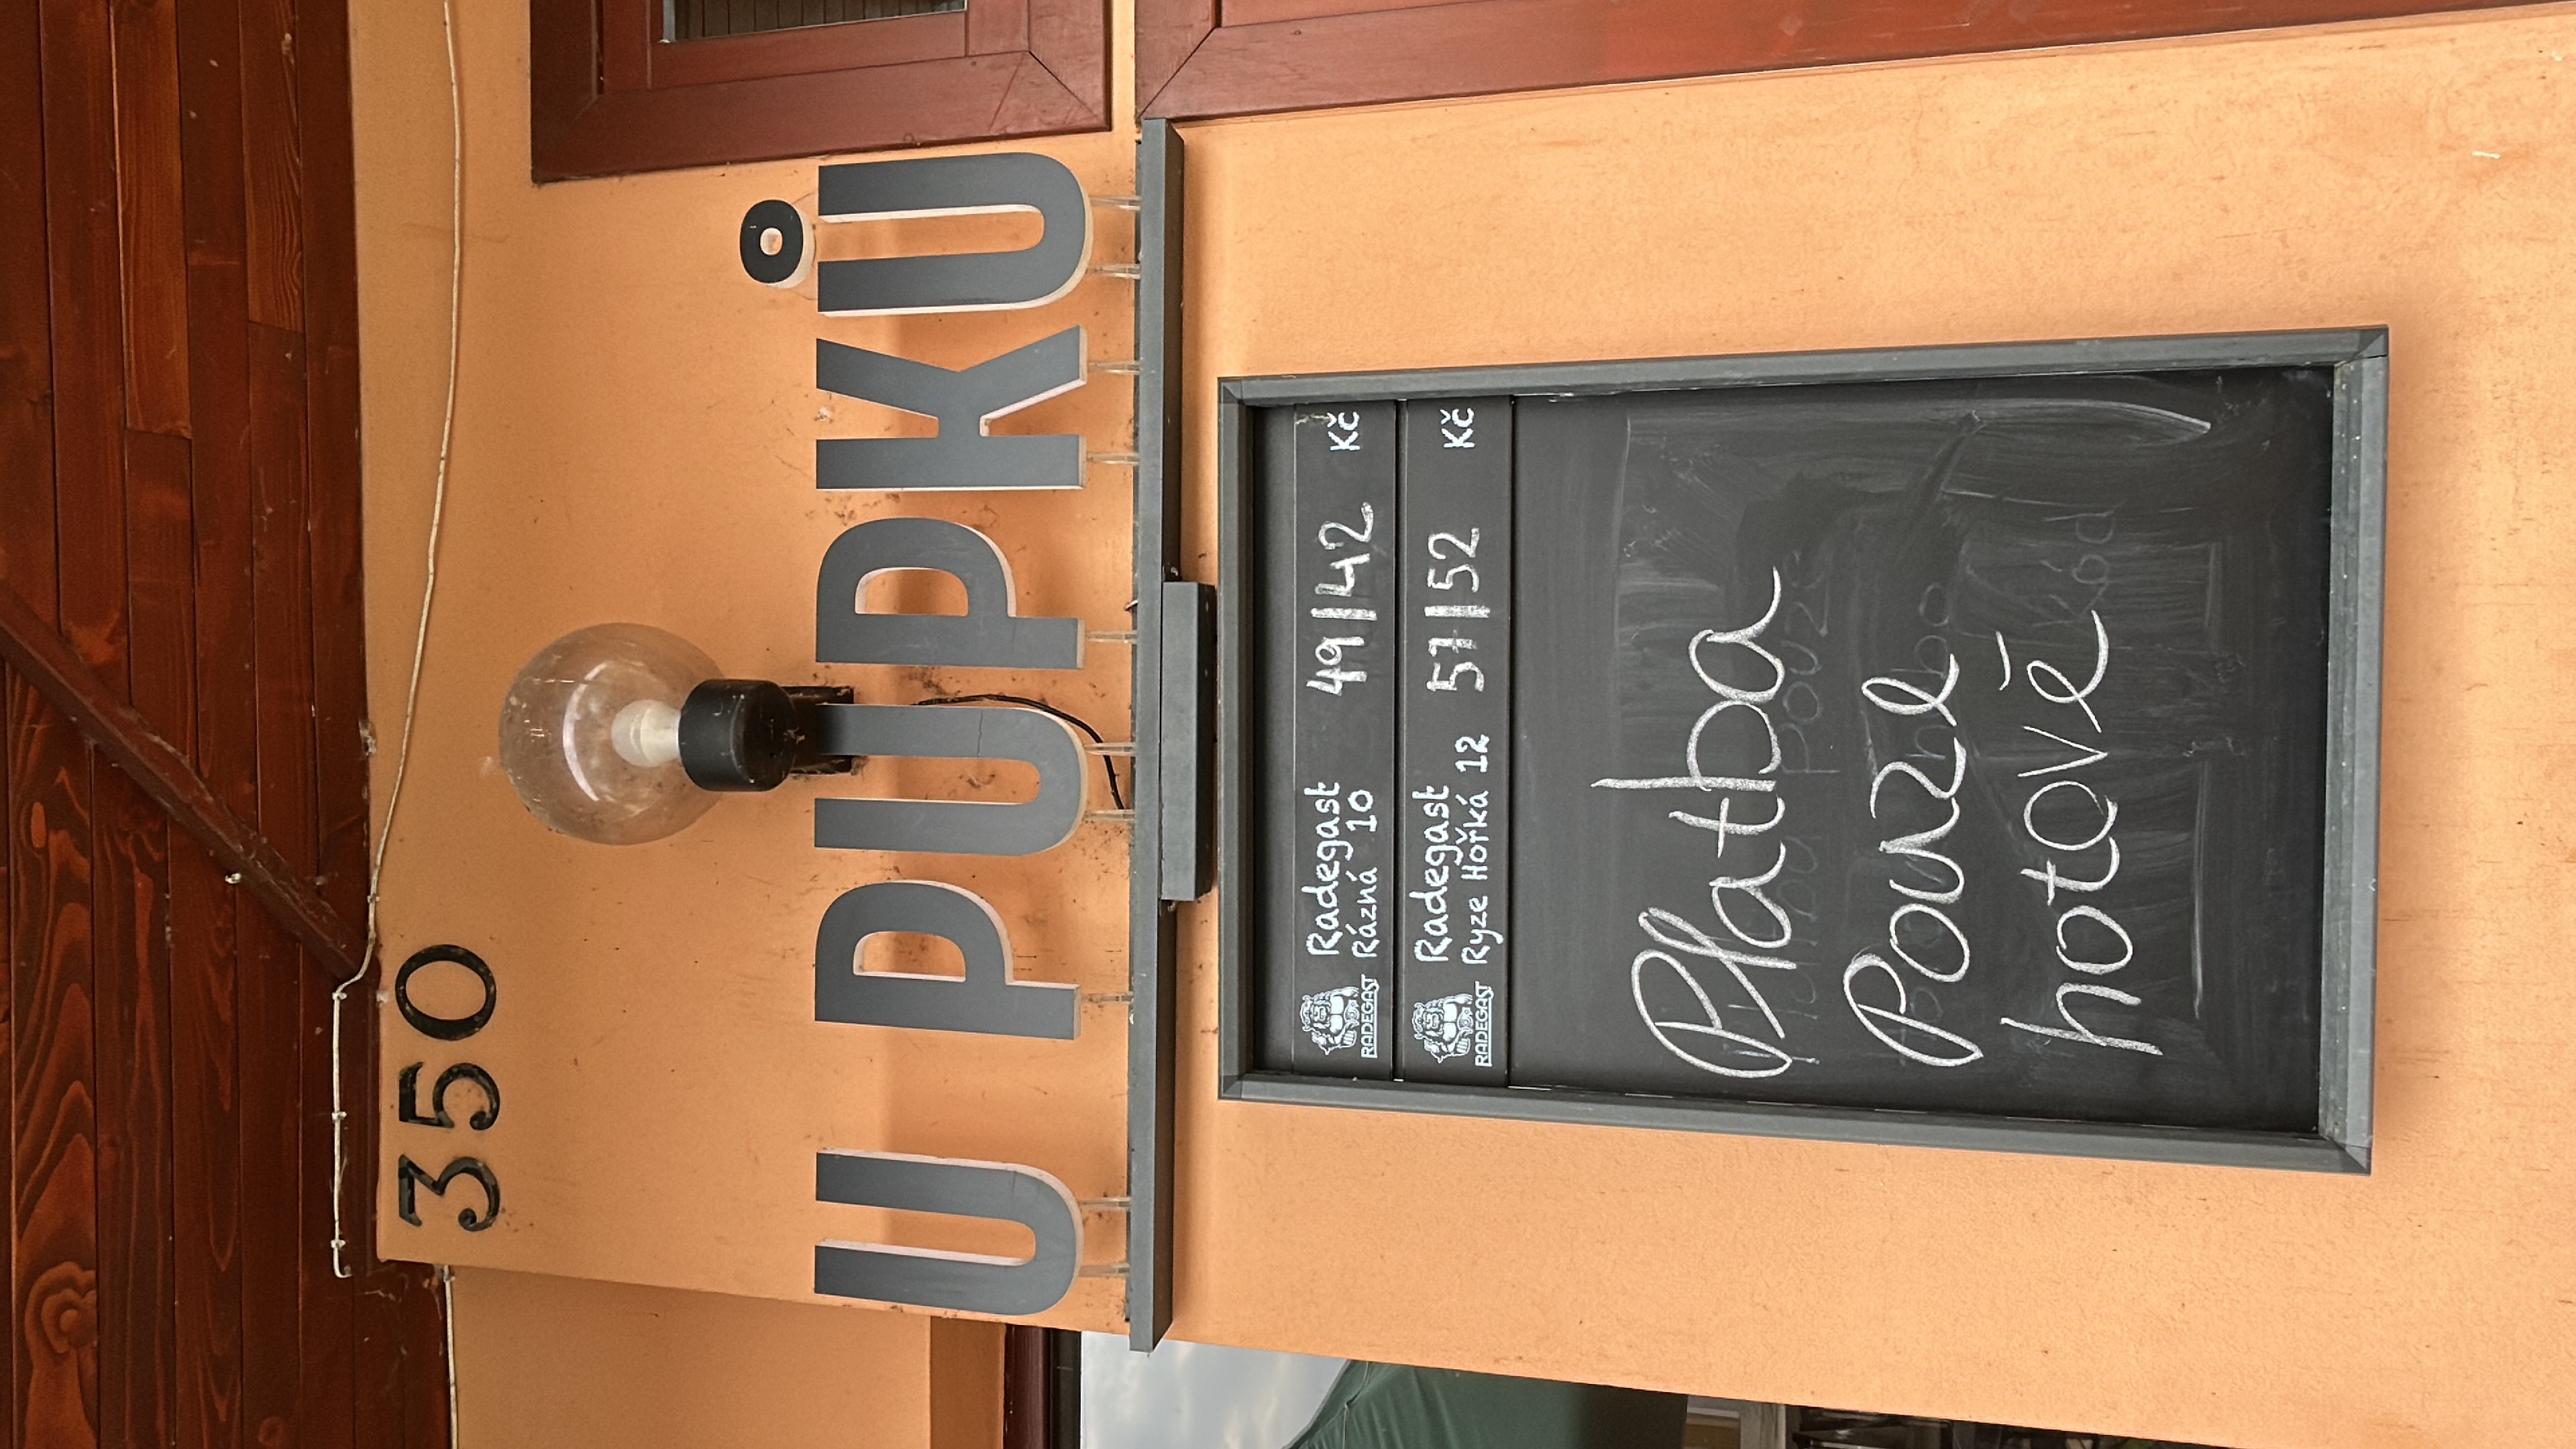 350
U PUPKŮ
RADEGAST Radegast 49|42 Kč
Rázná 10
RADEGAST Radegast 57|52 Kč
Ryze Hořká 12
Platba
Pouze
hotově